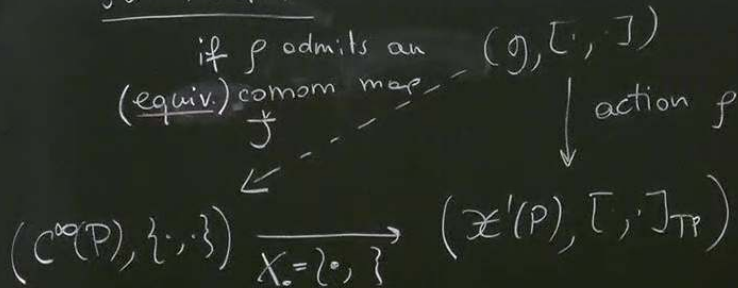 if ρ admits an
(equiv.) comom map
J̌
(g, [·, ·])
action ρ
(C^∞(P), {·, ·})
X. = {•, }
(𝔛'(P), [·, ·]_TP)